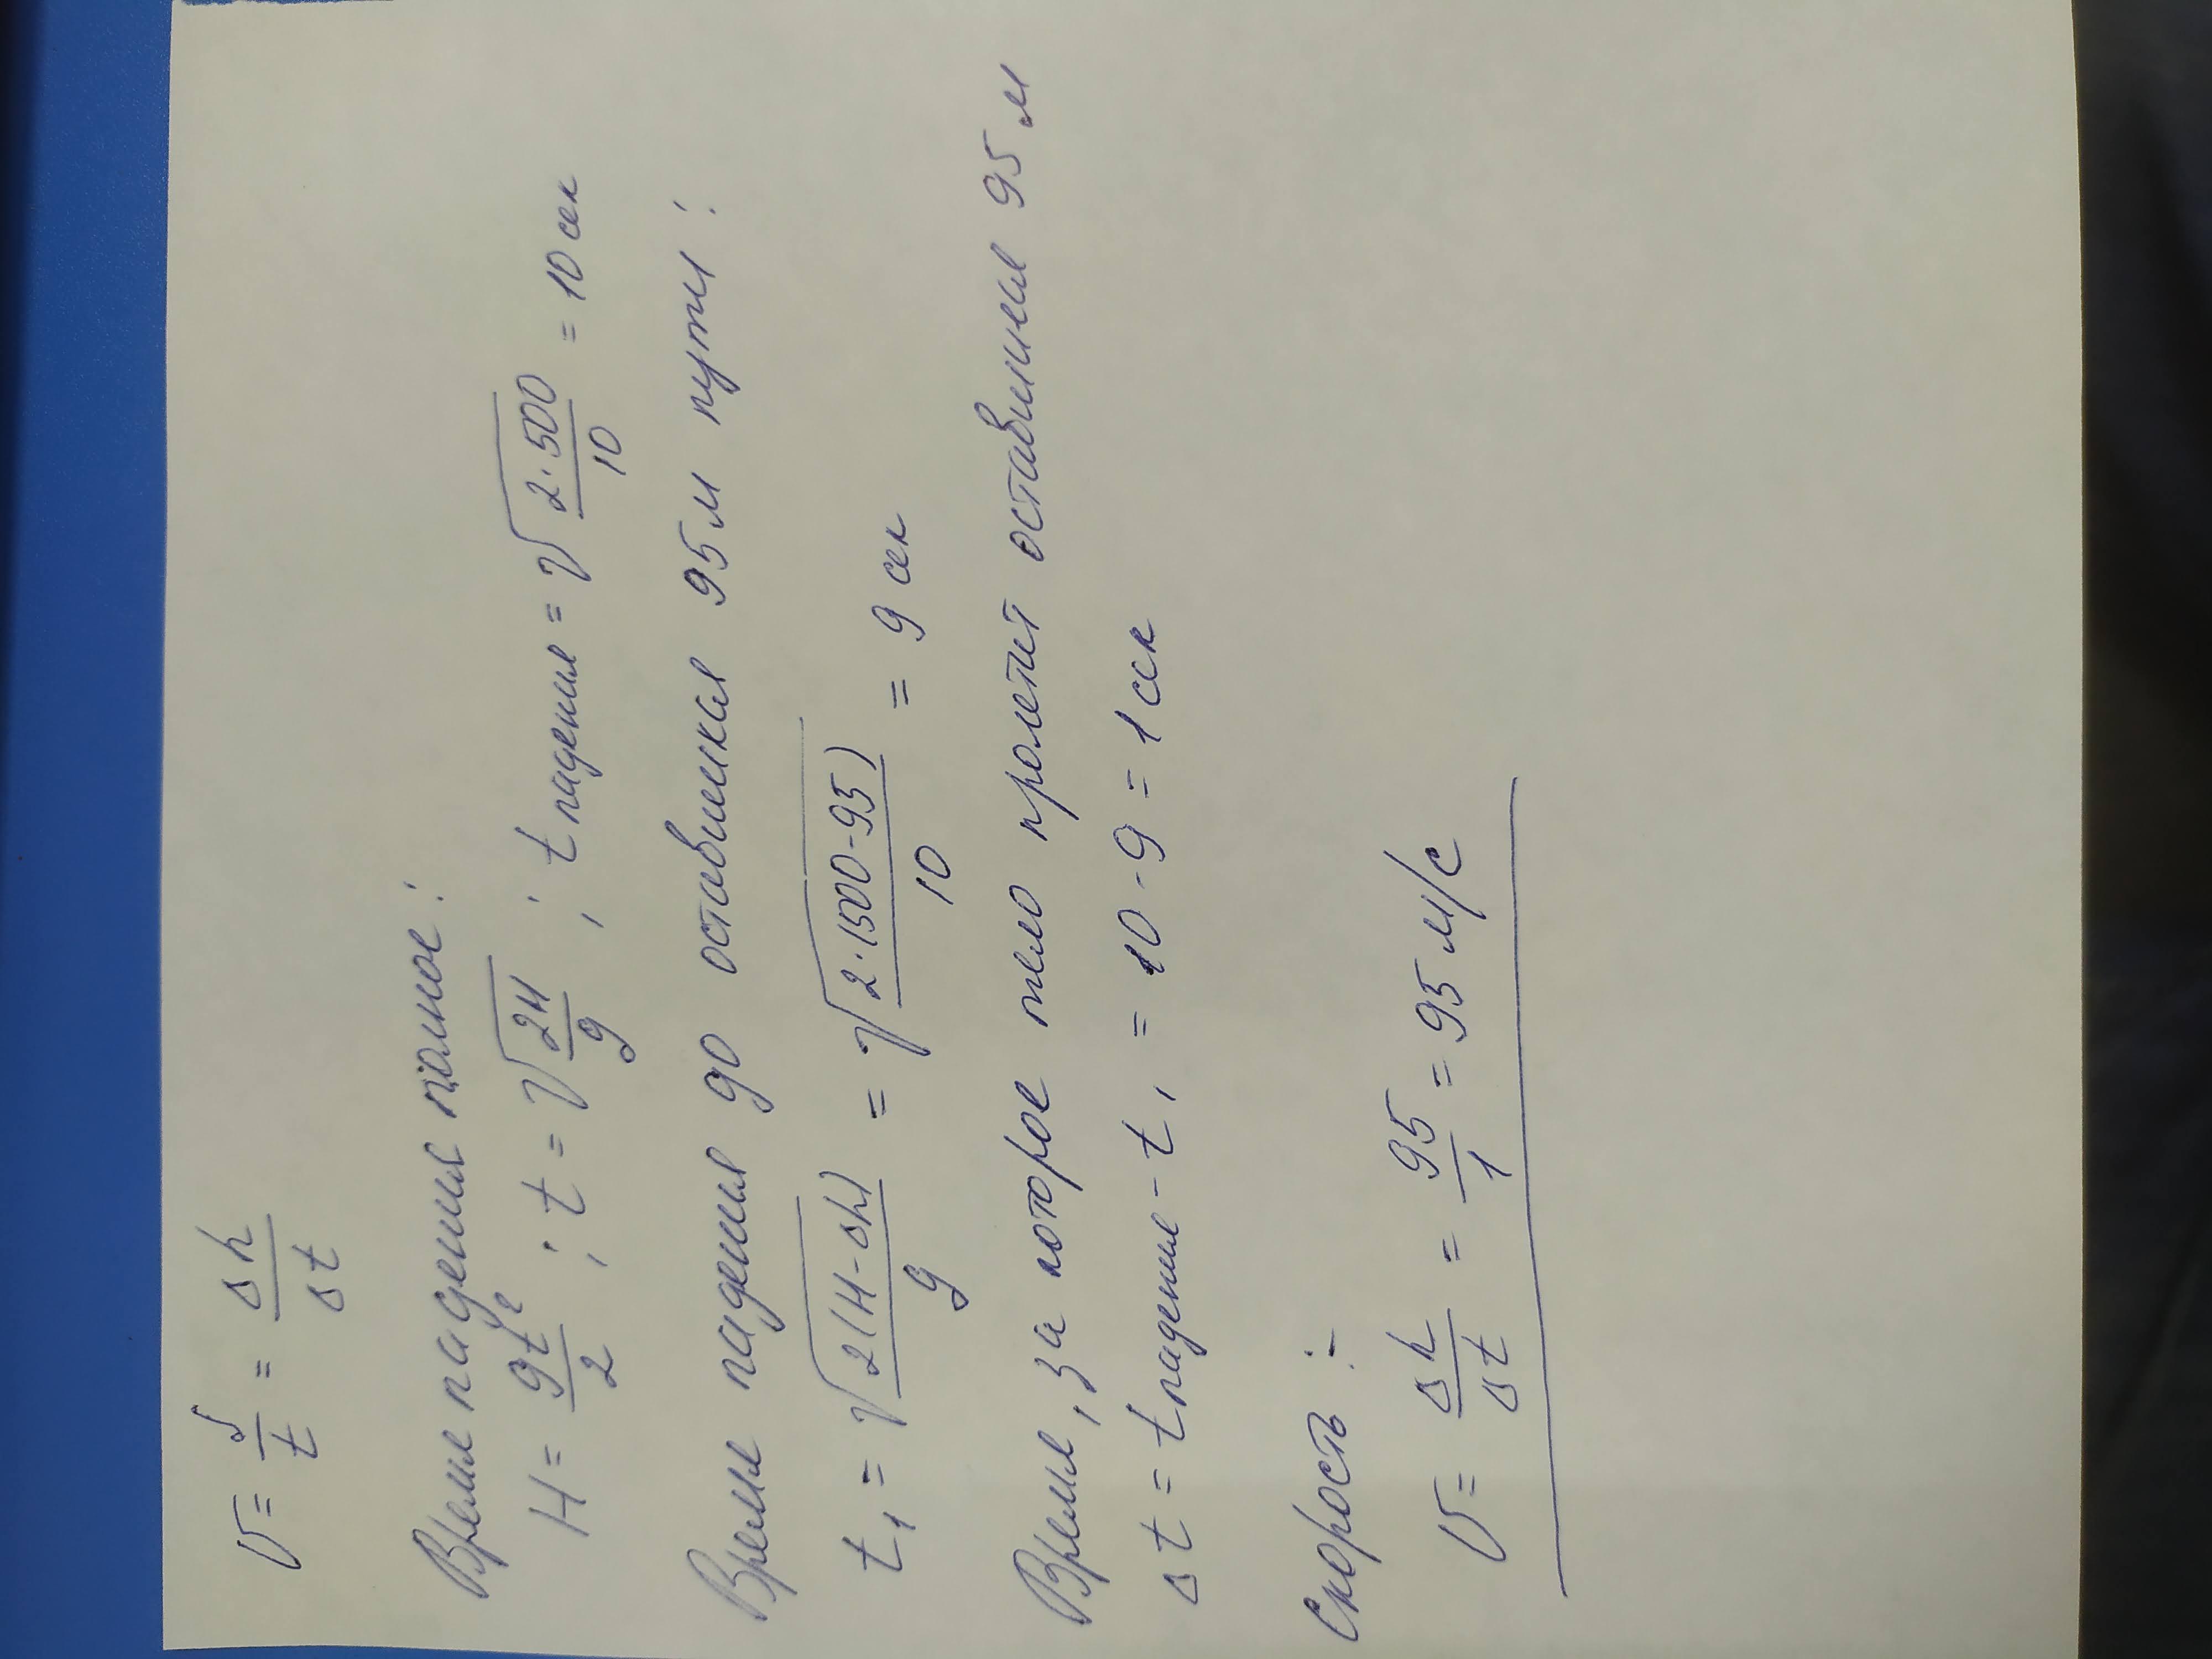 V = S/t = Δh/Δt
Время падения полное:
H = gt²/2 ; t = √(2H/g) ; t падения = √(2·500/10) = 10 сек
Время падения до оставшихся 95 м пути:
t₁ = √(2(H-Δh)/g) = √(2·(500-95)/10) = 9 сек
Время, за которое тело пролетит оставшиеся 95 м
Δt = t падения - t₁ = 10 - 9 = 1 сек
Скорость :-
V = Δh/Δt = 95/1 = 95 м/с